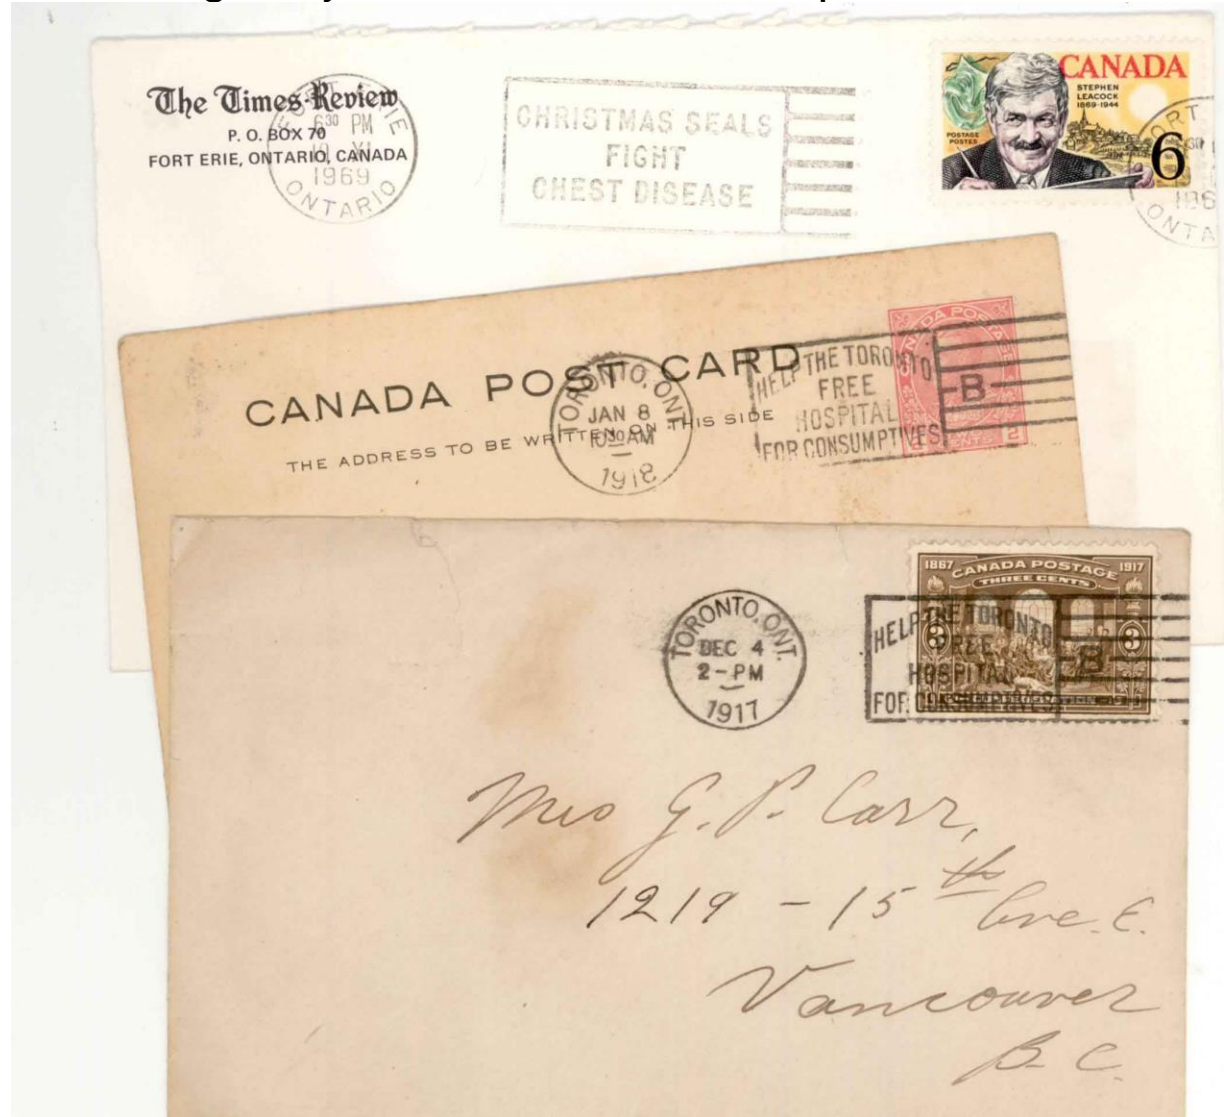 The Times-Review
P. O. BOX 70
FORT ERIE, ONTARIO, CANADA
FORT ERIE
6 30 PM
10 XI
1969
ONTARIO
CHRISTMAS SEALS
FIGHT
CHEST DISEASE
CANADA
STEPHEN
LEACOCK
1869-1944
POSTAGE
POSTES
6
ONTA
CANADA POST CARD
THE ADDRESS TO BE WRITTEN ON THIS SIDE
TORONTO, ONT.
JAN 8
10 30 AM
1918
HELP THE TORONTO
FREE
HOSPITAL
FOR CONSUMPTIVES
B
CANADA POSTAGE
2 CENTS 2
TORONTO, ONT.
DEC 4
2 - PM
1917
HELP THE TORONTO
FREE
HOSPITAL
FOR CONSUMPTIVES
B
1867 CANADA POSTAGE 1917
THREE CENTS
3 3
Mrs G. P. Carr,
1219 - 15th Ave. E.
Vancouver
B. C.